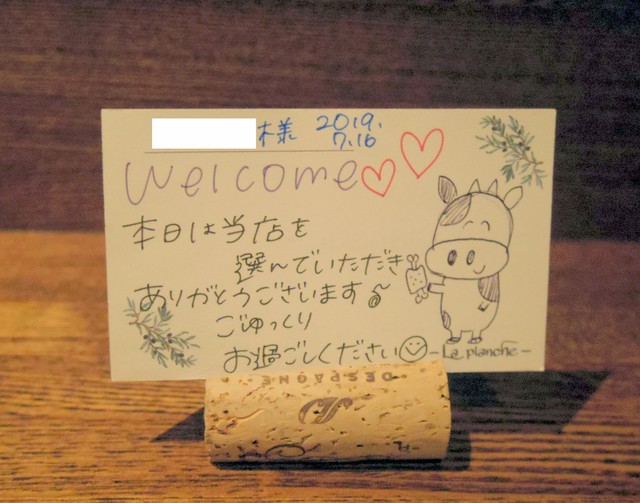 様 2019.
7.16
Welcome
本日は当店を
選んでいただき
ありがとうございます
ごゆっくり
お過ごしください
-La planche-
DESPAGNE